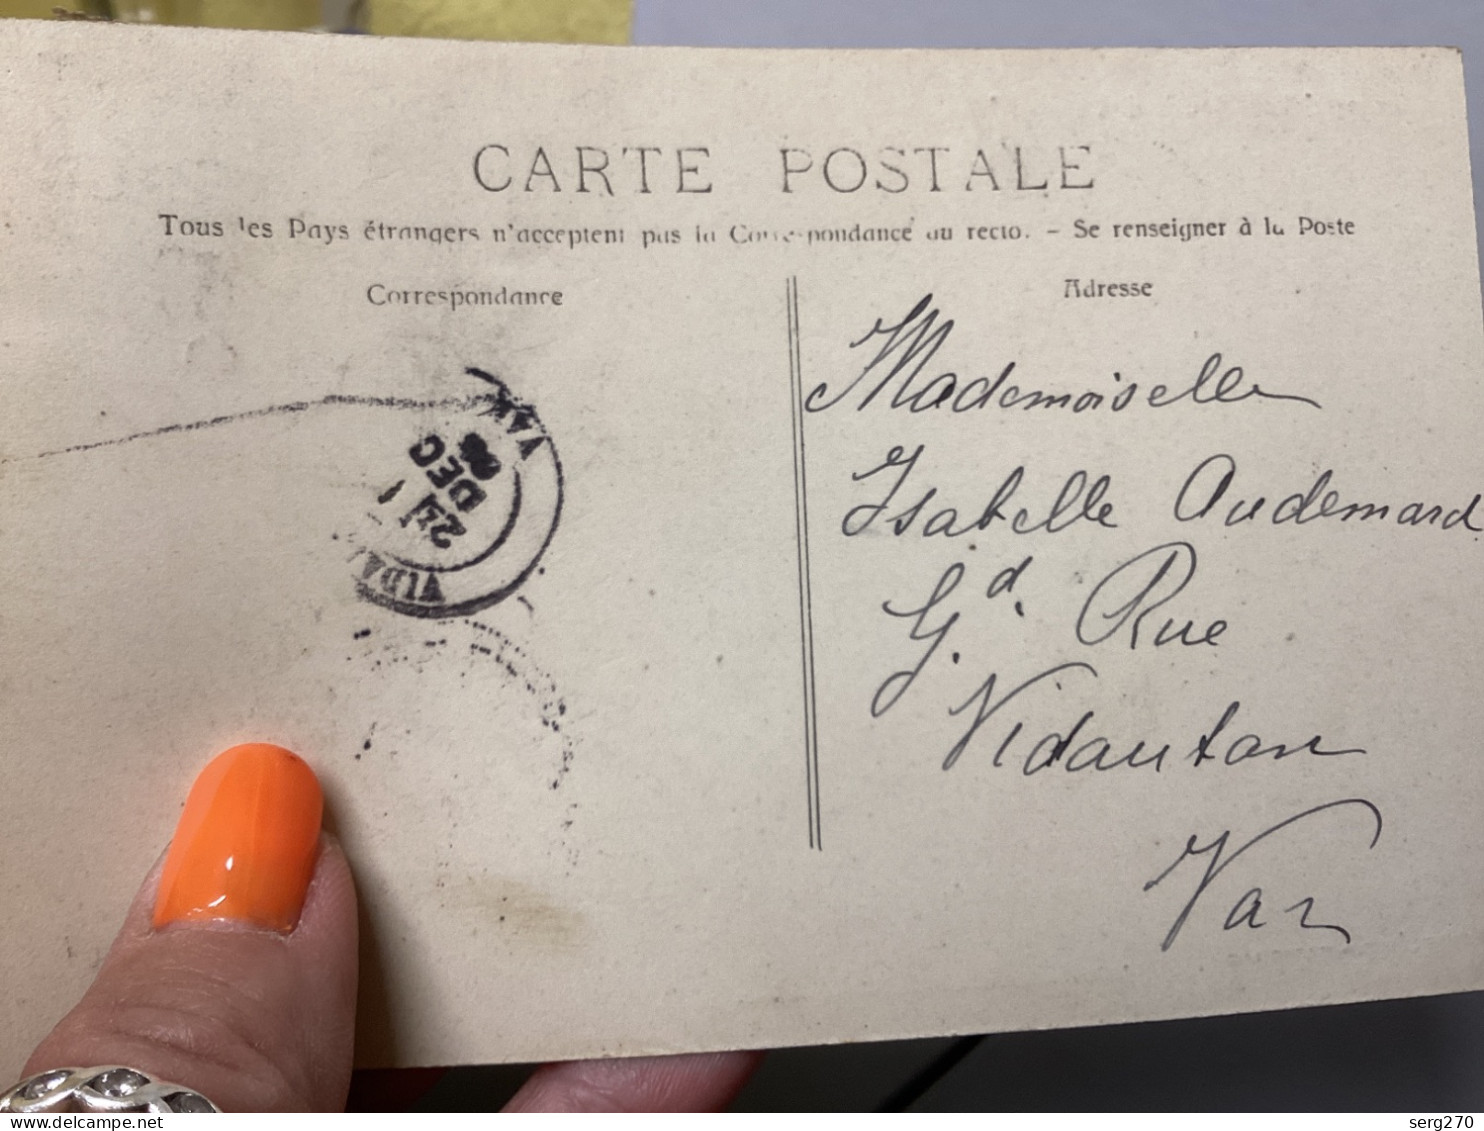 CARTE POSTALE
Tous les Pays étrangers n'acceptent pas la Correspondance au recto. - Se renseigner à la Poste
Correspondance
Adresse
Mademoiselle
Isabelle Audemard
Gd. Rue
Vidauban
Var
VIDA
VAR
24
DEC
serg270